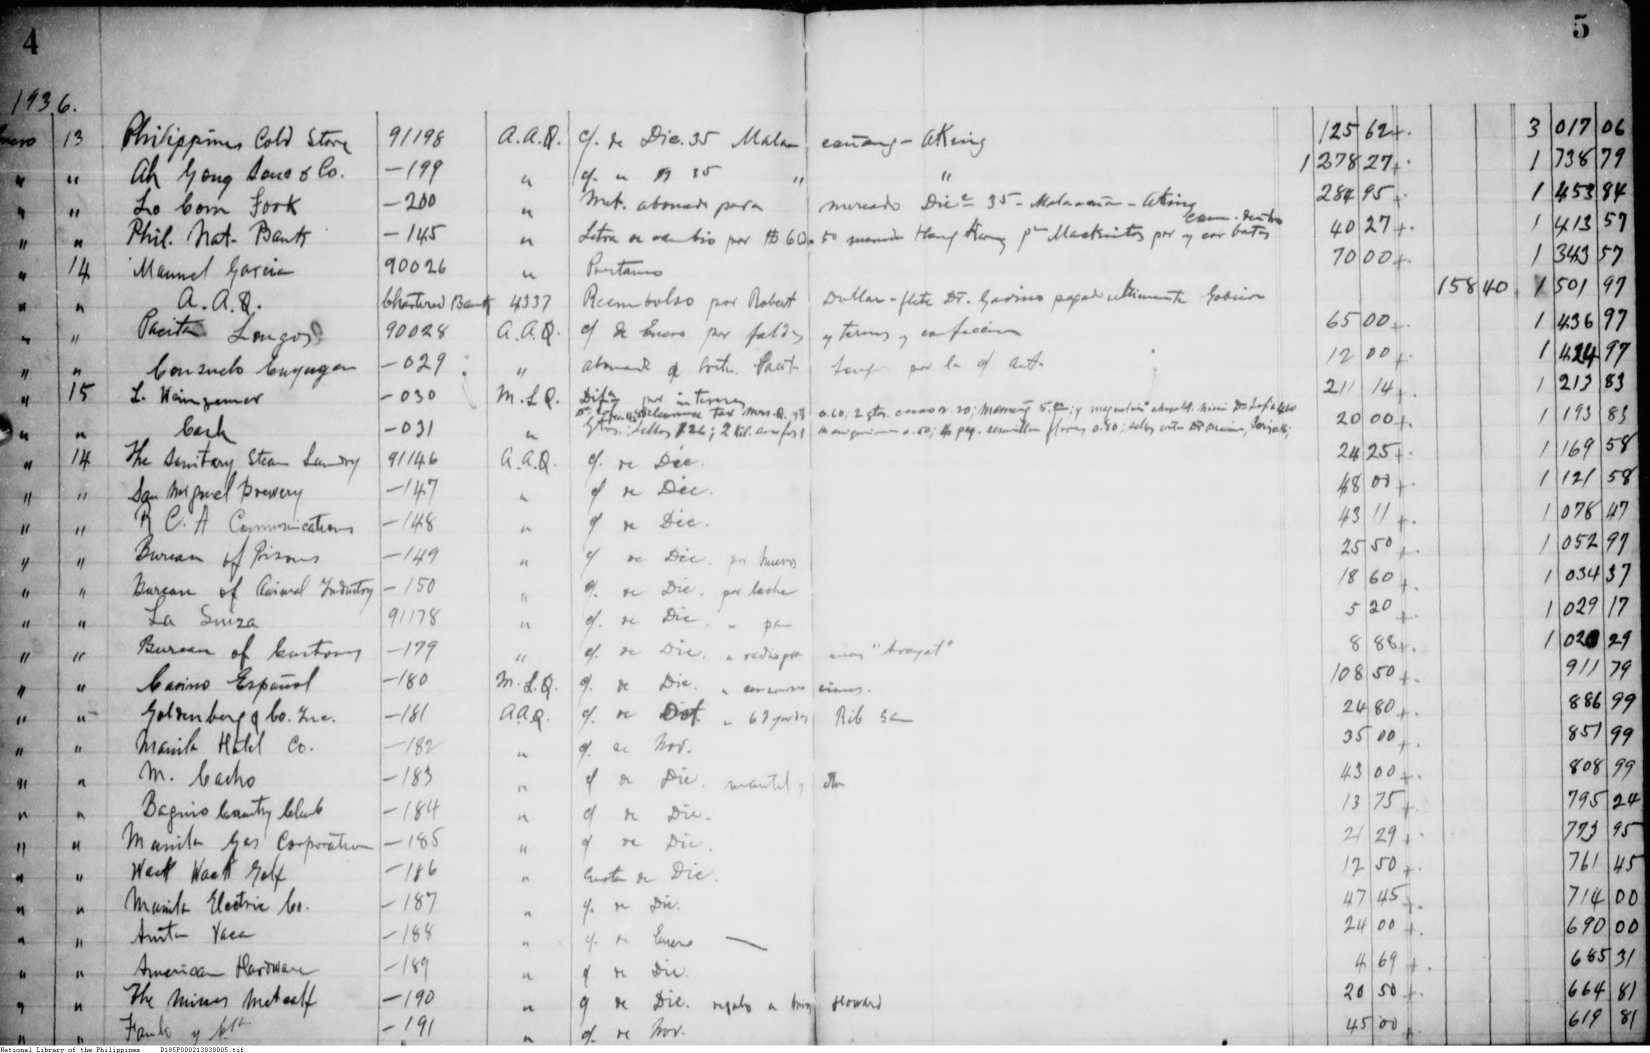 4 5
1936.
Enero 13 Philippines Cold Store 91198 A.A.Q. c/. de Dic. 35 Malacañang - Aking 125 62 3 017 06
" " Ah Gong Sons & Co. -199 " c/. " " 35 " " 1 278 27 1 738 79
" " Lo Com Fook -200 " Met. abonada para mercado Dic 35 - Malacañan - Aking 284 95 1 453 84
" " Phil. Nat. Bank -145 " Letra de cambio por 60.50 Hong Kong Mackintos por y corbatas 40 27 1 413 57
" 14 Manuel Garcia 90026 " Prestamo 70 00 1 343 57
" " A.A.Q. Chartered Bank 4337 Reembolso por Robert Dollar - flete Dr. Gavino 158 40 1 501 97
" " Pacita Longos 90028 A.A.Q. c/ de Enero por faldas y ternos y confeccion 65 00 1 436 97
" " Consuelo Cuyugan -029 " abonada por la c/ ant. 12 00 1 424 97
" 15 L. Weinzemer -030 M.L.Q. por 211 14 1 213 83
" " Cash -031 " 20 00 1 193 83
" 14 The Sanitary Steam Laundry 91146 A.A.Q. c/. de Dic. 24 25 1 169 58
" " San Miguel Brewery -147 " c/ de Dic. 48 00 1 121 58
" " R C. A Communications -148 " c/ de Dic. 43 11 1 078 47
" " Bureau of Prisons -149 " c/ de Dic. por huevos 25 50 1 052 97
" " Bureau of Animal Industry -150 " c/. de Dic. por leche 18 60 1 034 37
" " La Suiza 91178 " c/. de Dic. " pan 5 20 1 029 17
" " Bureau of Customs -179 " c/. de Dic. " "Arayat" 8 88 1 020 29
" " Casino Español -180 M.L.Q. c/. de Dic. " 108 50 911 79
" " Goldenberg & Co. Inc. -181 A.A.Q. c/. de Oct. " 62 yardas Rib 24 80 886 99
" " Manila Hotel Co. -182 " c/. de Nov. 35 00 851 99
" " M. Cacho -183 " c/ de Dic. mantel y 43 00 808 99
" " Baguio Country Club -184 " c/ de Dic. 13 75 795 24
" " Manila Gas Corporation -185 " c/ de Dic. 21 29 773 95
" " Wack Wack Golf -186 " Cuota de Dic. 12 50 761 45
" " Manila Electric Co. -187 " c/. de Dic. 47 45 714 00
" " Anita Vaca -188 " c/. de Enero 24 00 690 00
" " American Hardware -189 " c/ de Dic. 4 69 685 31
" " The Misses Metcalf -190 " c/ de Dic. regalo a Howard 20 50 664 81
" " -191 " c/. de Nov. 45 00 619 81
National Library of the Philippines D185P000213030005.tif